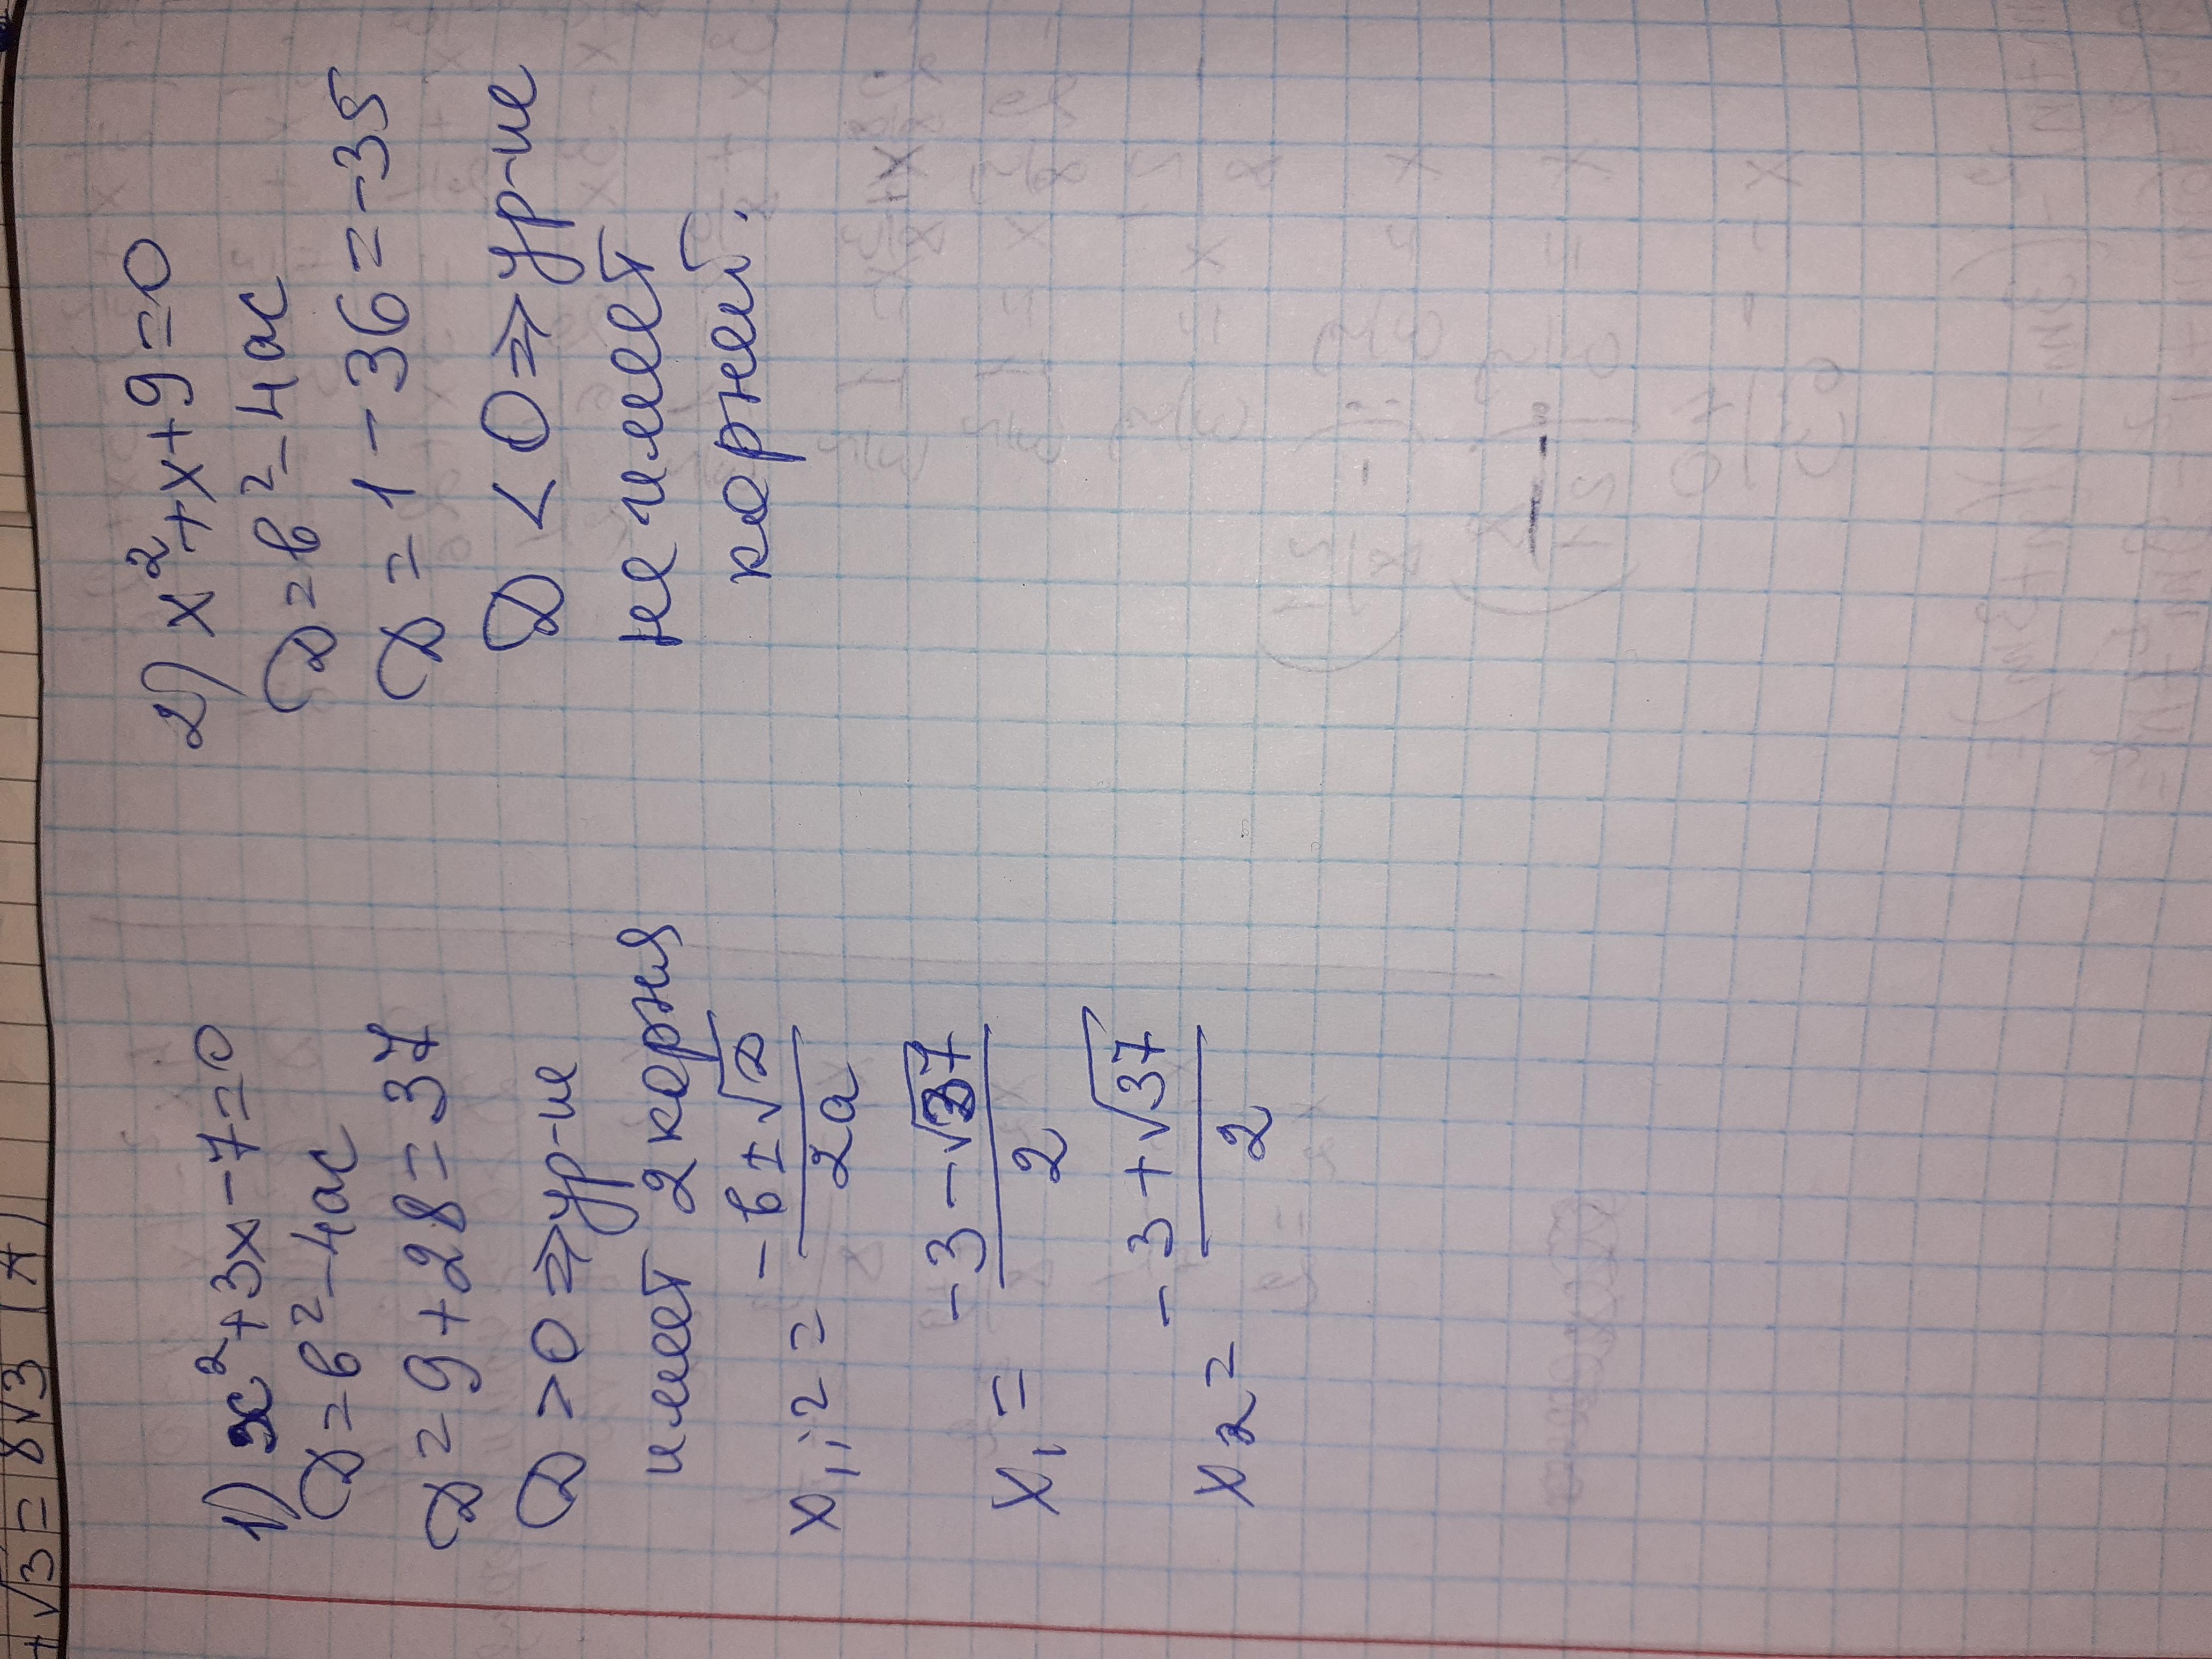 +√3 = 8√3
1) x²+3x-7=0
D=b²-4ac
D=9+28=37
D>0 ⇒ ур-ие
имеет 2 корня
x₁;₂ = (-b±√D)/2a
x₁ = (-3-√37)/2
x₂ = (-3+√37)/2
2) x²+x+9=0
D=b²-4ac
D=1-36=-35
D<0 ⇒ ур-ие
не имеет
корней.